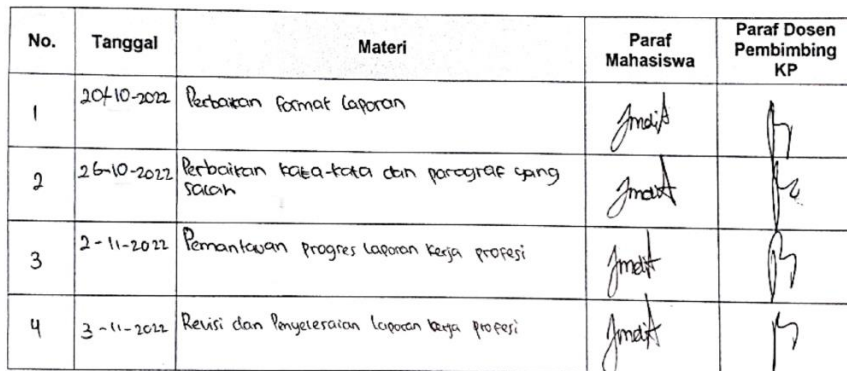 No. Tanggal Materi Paraf Mahasiswa Paraf Dosen Pembimbing KP
1 20-10-2022 Perbaikan format laporan
2 26-10-2022 Perbaikan kata-kata dan paragraf yang
salah
3 2-11-2022 Pemantauan progres laporan kerja profesi
4 3-11-2022 Revisi dan Penyelesaian laporan kerja profesi